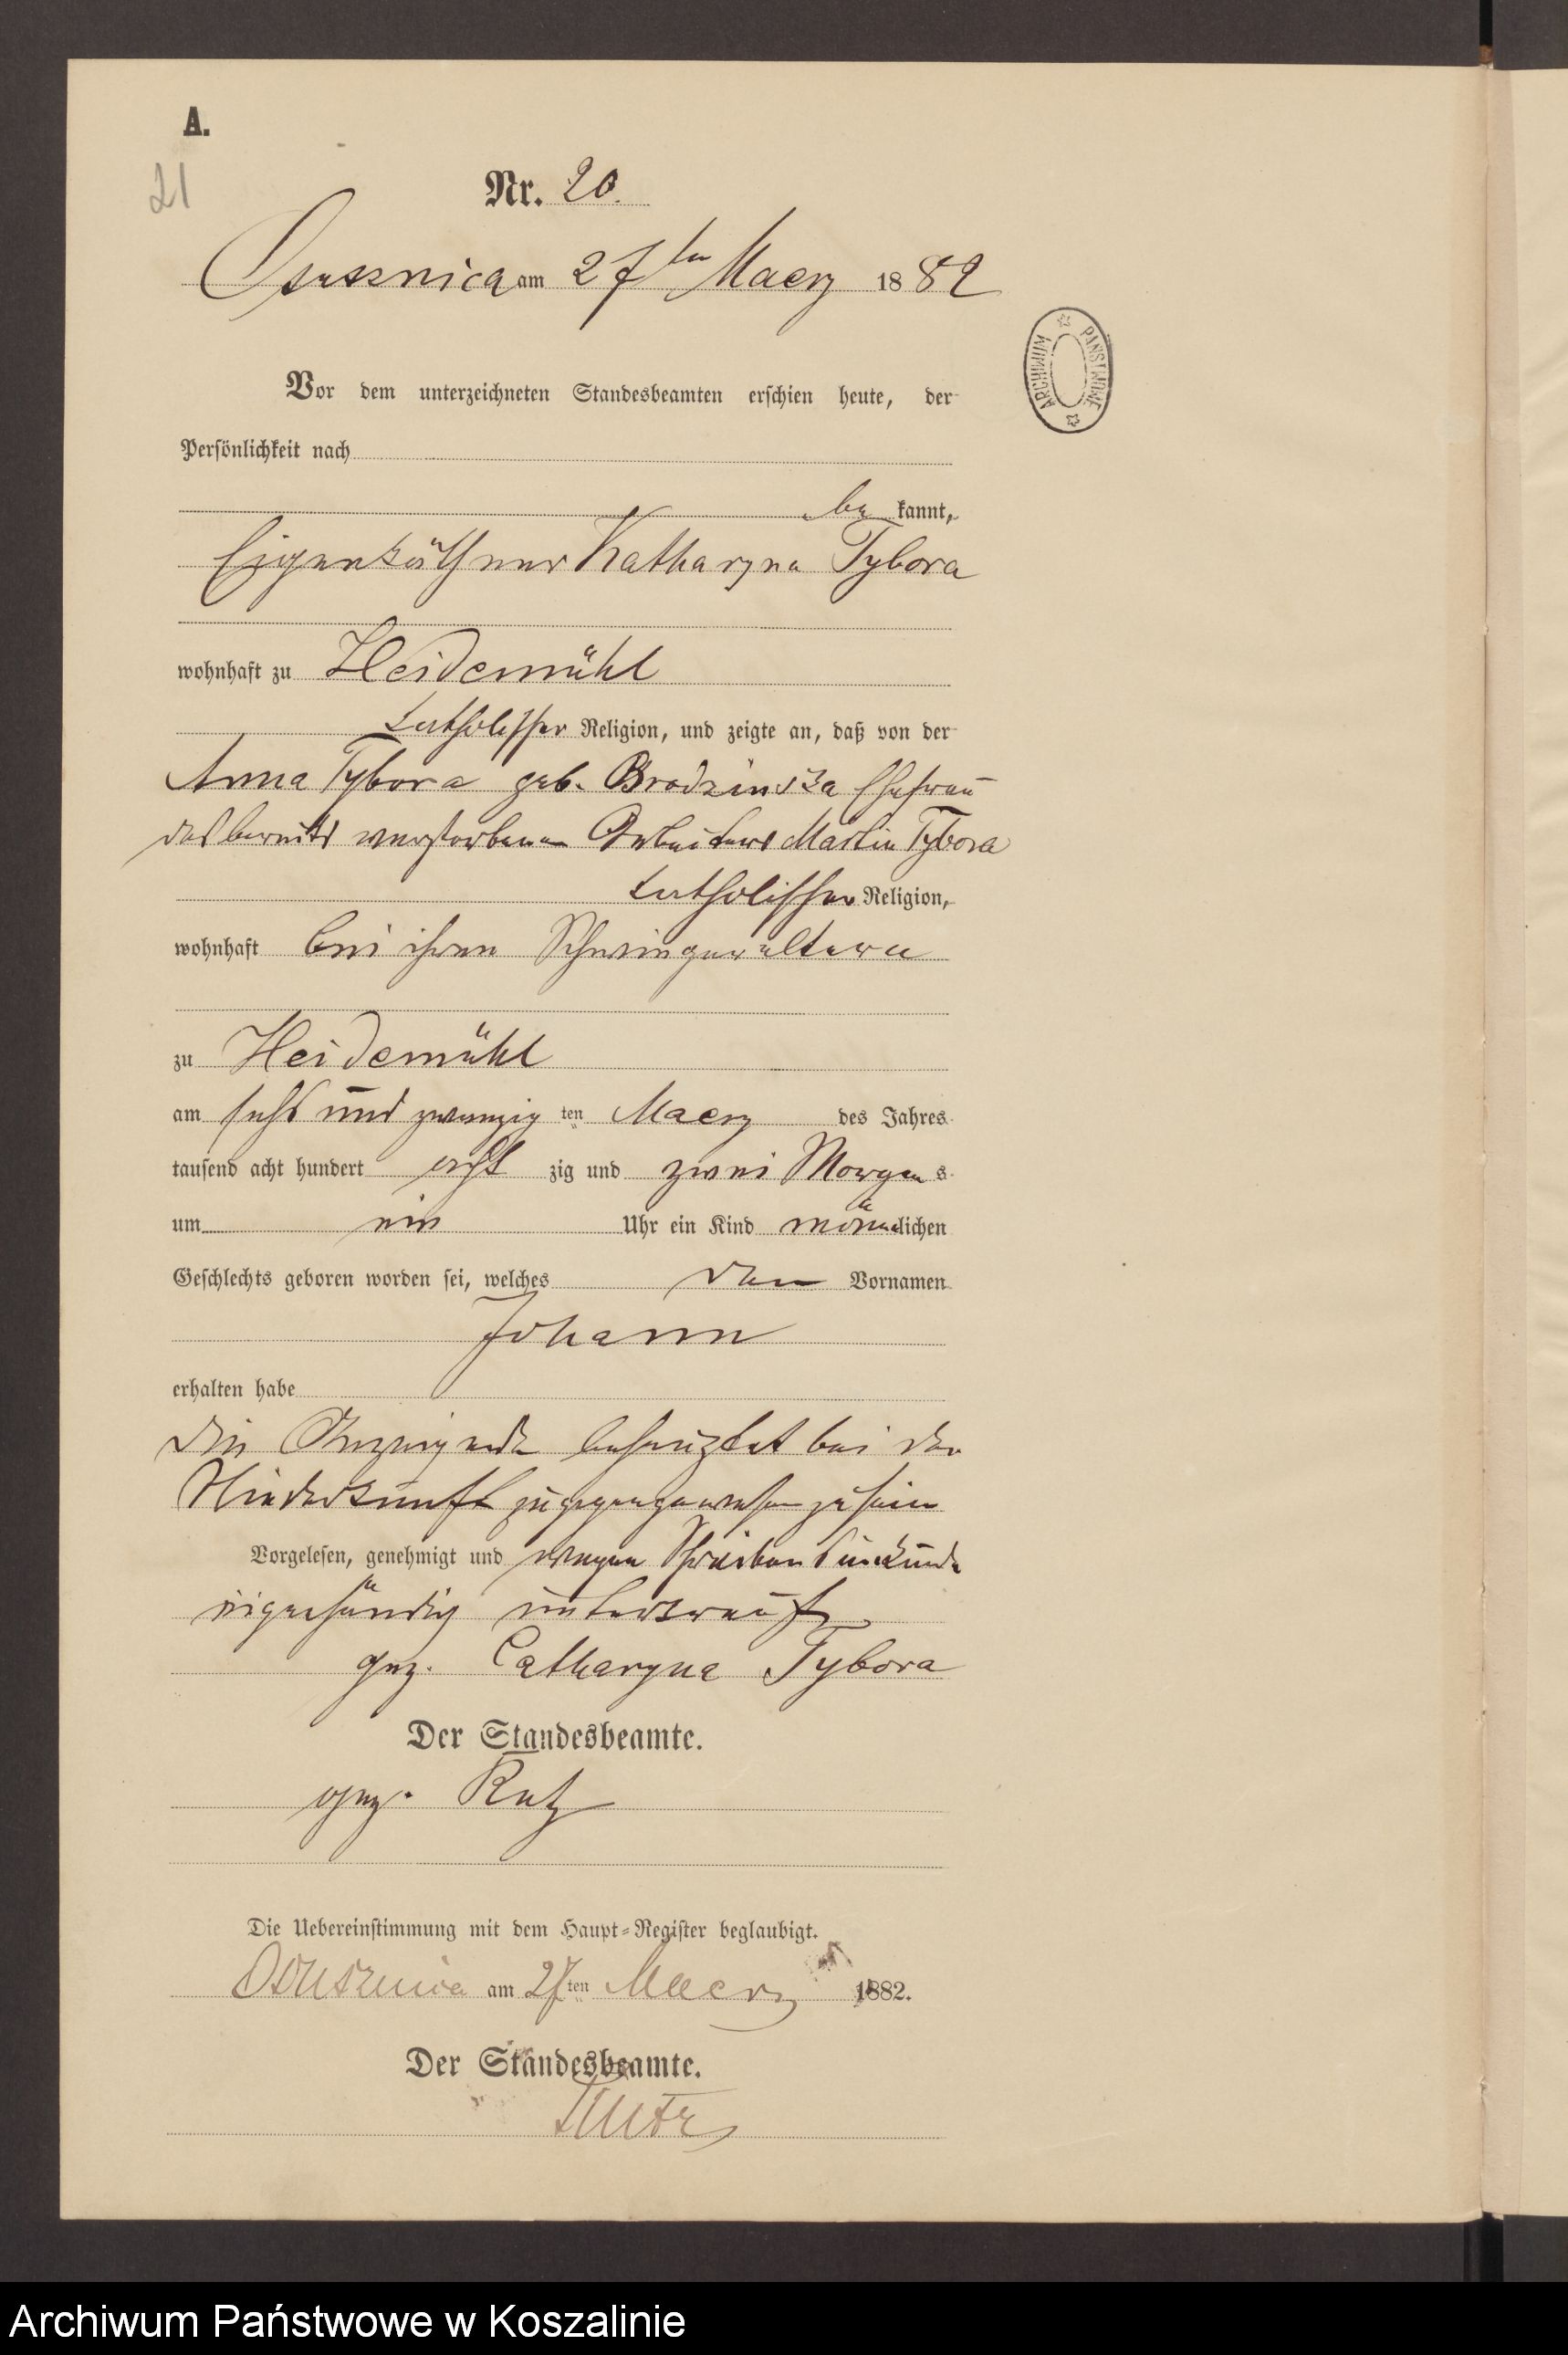 A.
21
Nr. 20.
Ossusznica am 27ten Maerz 1882
ARCHIWUM PAŃSTWOWE
Vor dem unterzeichneten Standesbeamten erschien heute, der
Persönlichkeit nach
be kannt,
Eigenkäthner Katharyna Tybora
wohnhaft zu Heidemühl
katholischer Religion, und zeigte an, daß von der
Anna Tybora geb. Brodzinska Ehefrau
des bereits verstorbenen Arbeiters Martin Tybora
katholischer Religion,
wohnhaft bei ihren Schwiegereltern
zu Heidemühl
am sechs und zwanzig ten Maerz des Jahres
tausend acht hundert acht zig und zwei Morgens
um ein Uhr ein Kind männlichen
Geschlechts geboren worden sei, welches den Vornamen
Johann
erhalten habe
die Anzeigende bei der
Niederkunft zugegengewesen zu sein
Vorgelesen, genehmigt und wegen Schreibensunkunde
eigenhändig unterkreuzt
gez. Catharyna Tybora
Der Standesbeamte.
gez. Rutz
Die Uebereinstimmung mit dem Haupt-Register beglaubigt.
Ossusznica am 27ten Maerz 1882.
Der Standesbeamte.
Rutz
Archiwum Państwowe w Koszalinie